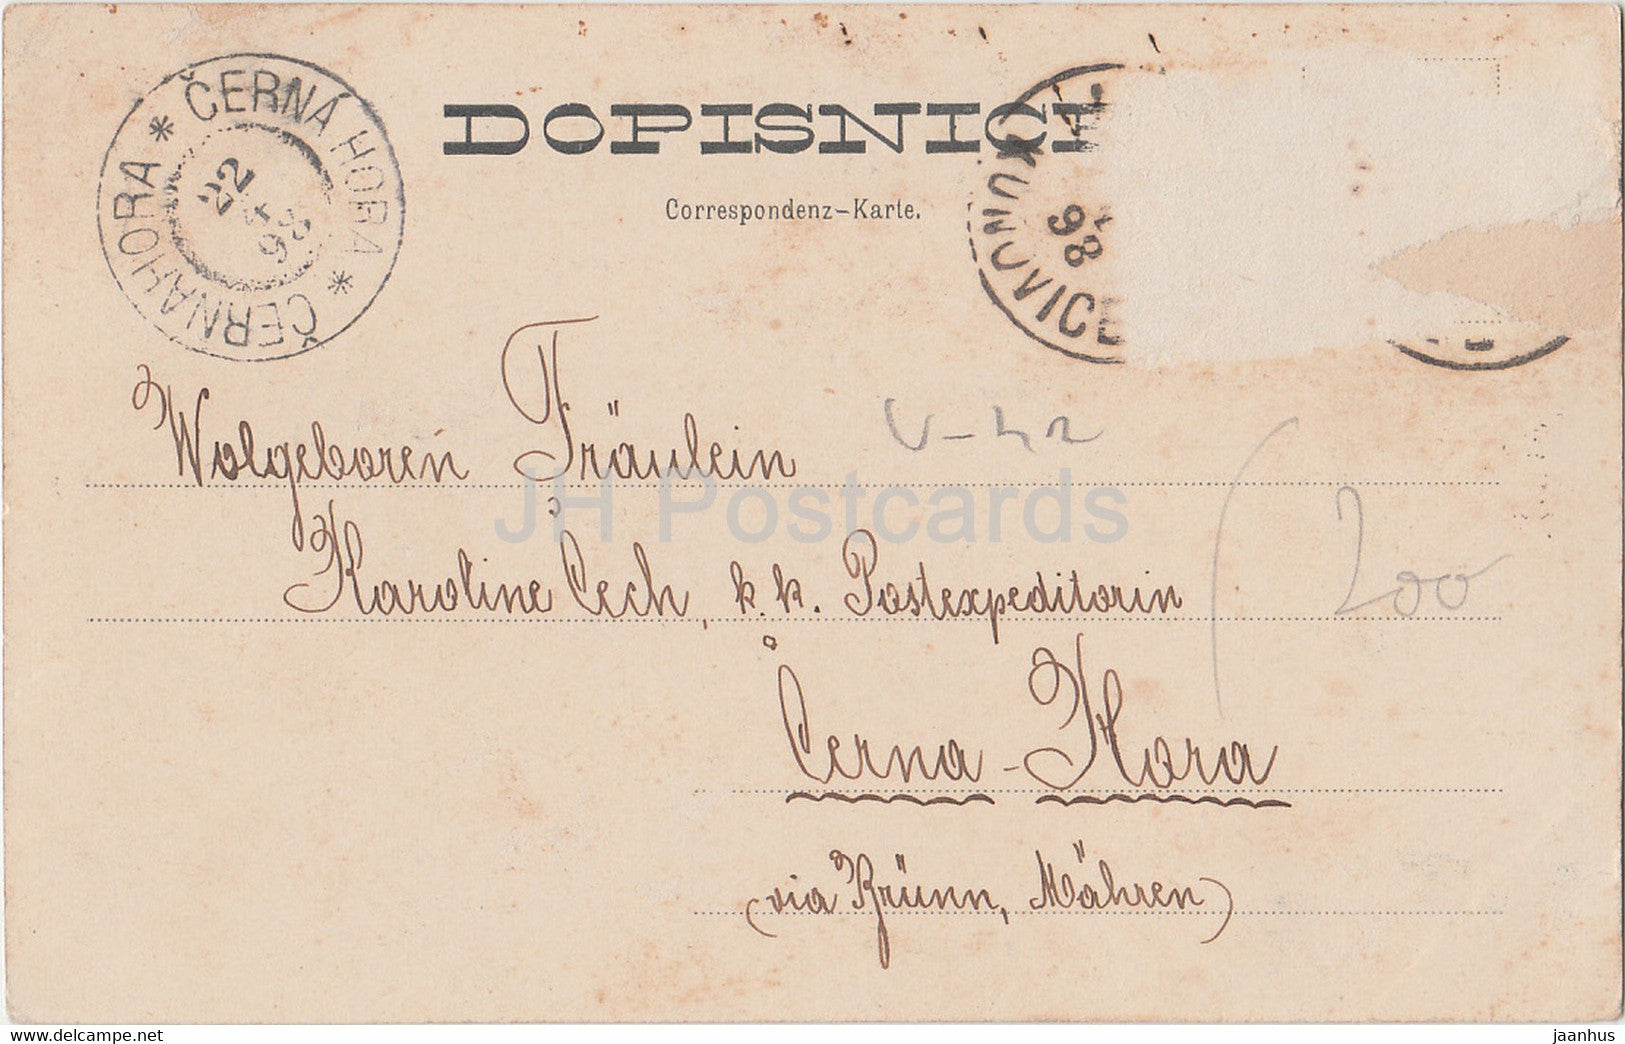 ČERNÁ HORA * ČERNAHORA *
22
4
98
DOPISNICE
Correspondenz-Karte.
98
Wolgeboren Fräulein
Karoline Čech, k. k. Postexpeditorin
Černa-Hora
(via Brünn, Mähren)
V-42
200
JH Postcards
www.delcampe.net
jaanhus